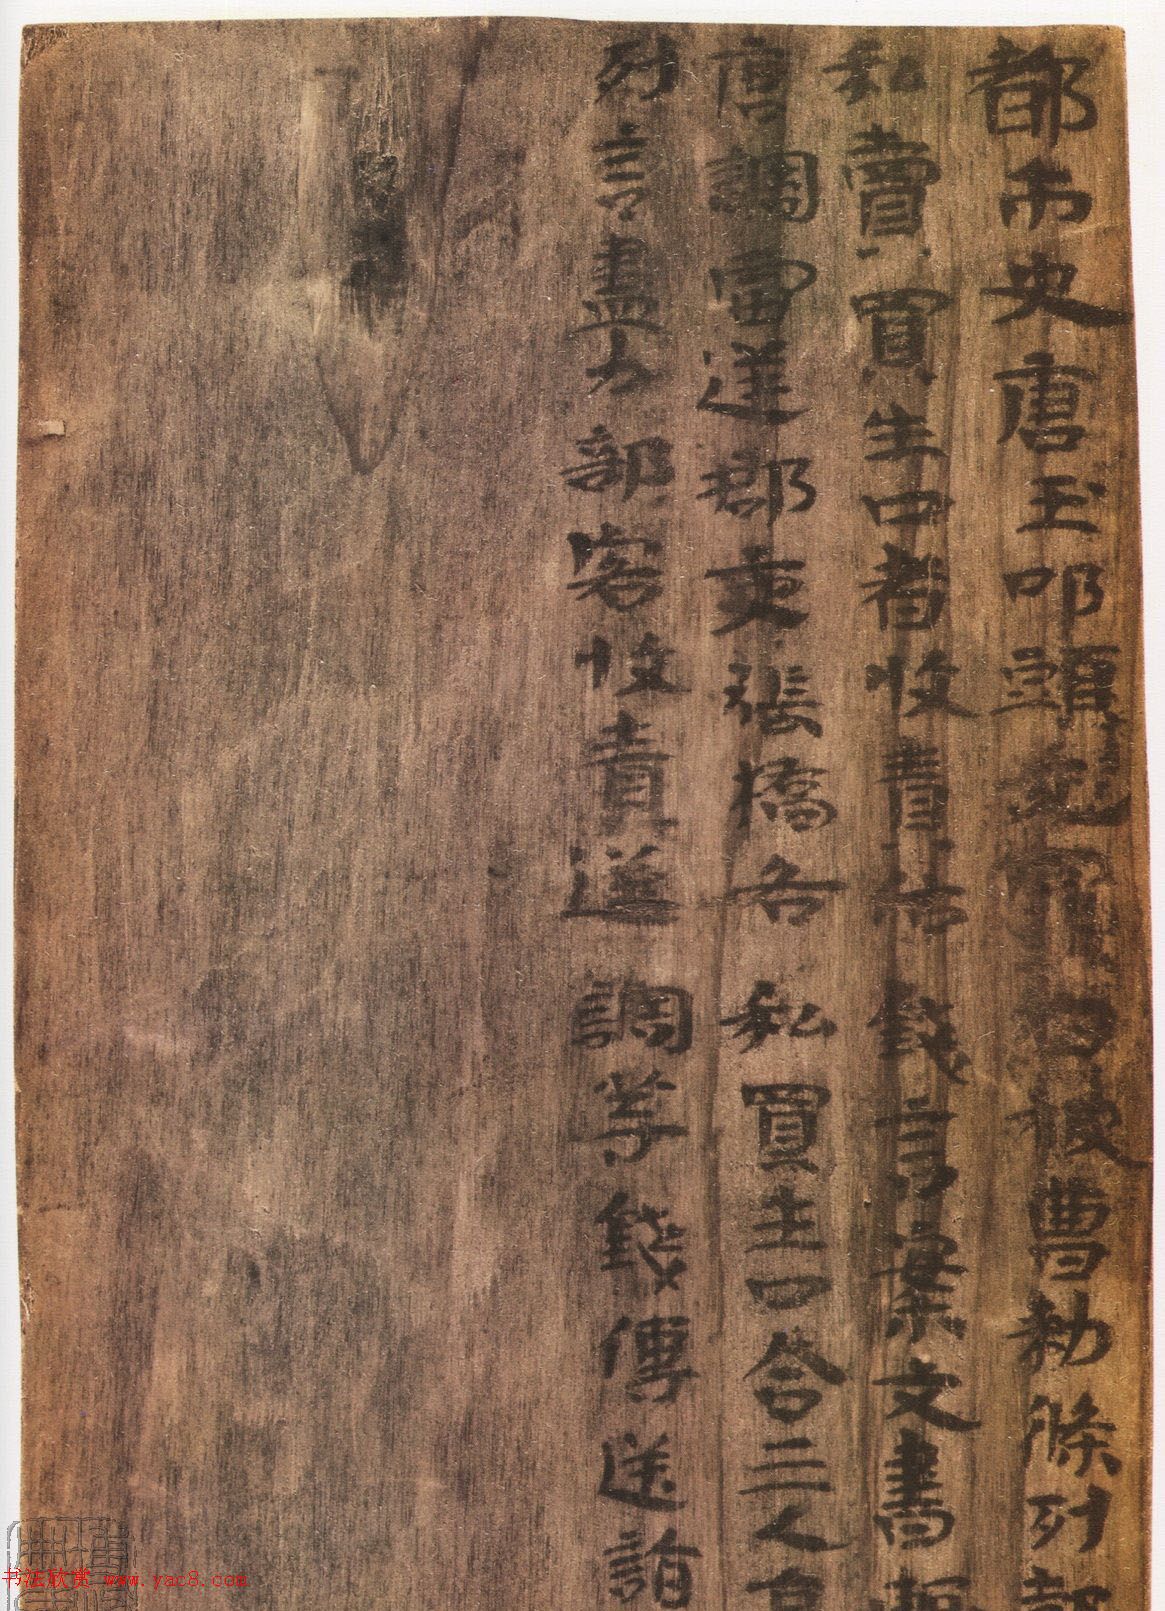 都市史唐玉叩頭死罪白被曹勑條列部
私賣買生口者收責估錢言案文書輒
唐調雷逆郡吏張橋各私買生口合三人
列言盡力部客收責逆調等錢傳送詣
书法欣赏 www.yac8.com